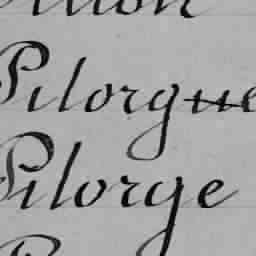 Pilorgue
Pilorge